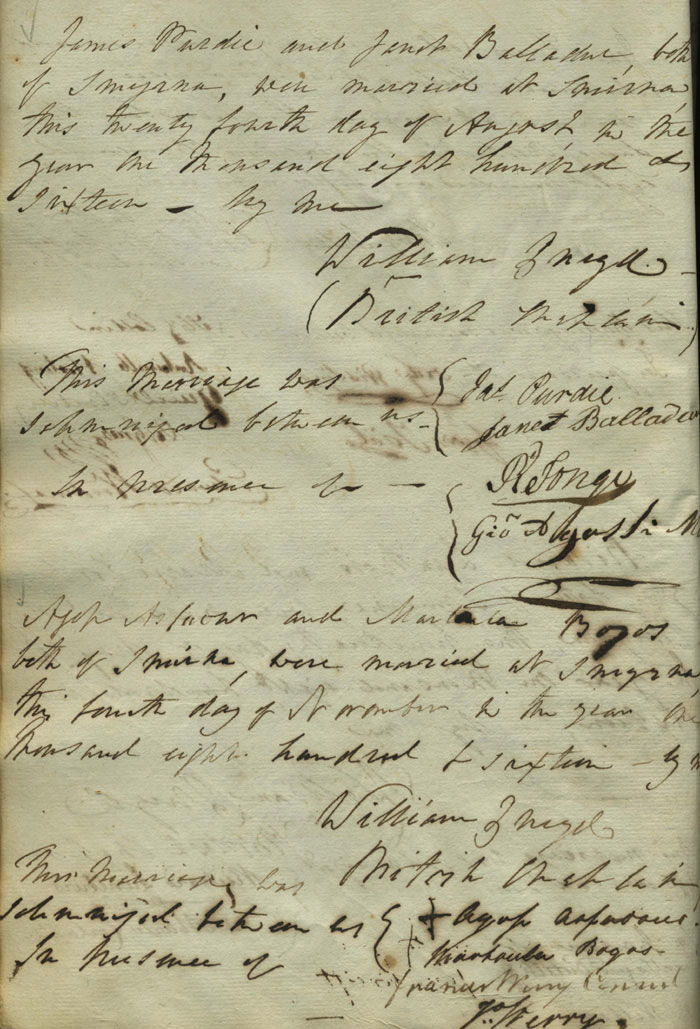 James Purdie and Janet Balladur, both
of Smyrna, were married at Smirna
this twenty fourth day of August in the
year one thousand eight hundred &
Sixteen – by me
William
(British Chaplain)
This Marriage was
solemnized between us –
Jas. Purdie
Janet Balladur
In presence of –
Giō
Agop and Bogos
both of Smirna, were married at Smyrna
this fourth day of November in the year one
thousand eight hundred & sixteen – by
William
British Chaplain
This Marriage was
solemnized between us
+ Agop
Bogos
In presence of
Werry Consul
Werry